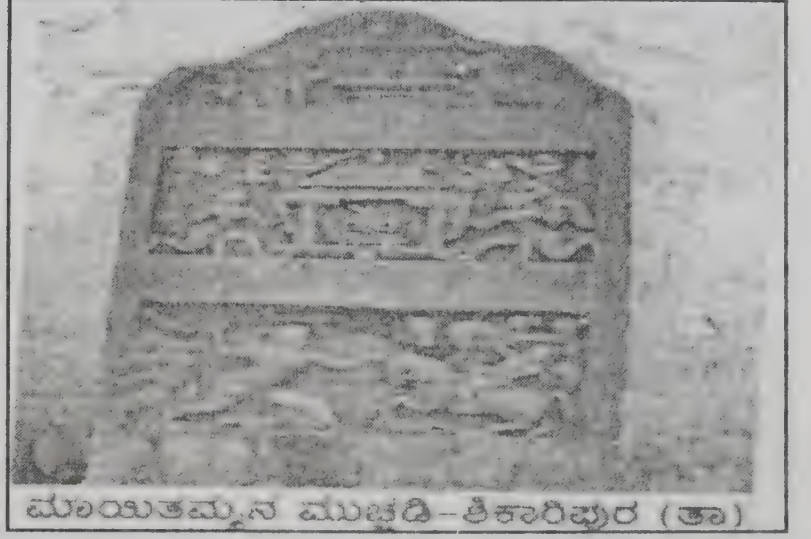 ಮಾಯಿತಮ್ಮನ ಮುಚ್ಚಡಿ-ಶಿಕಾರಿಪುರ (ತಾ)